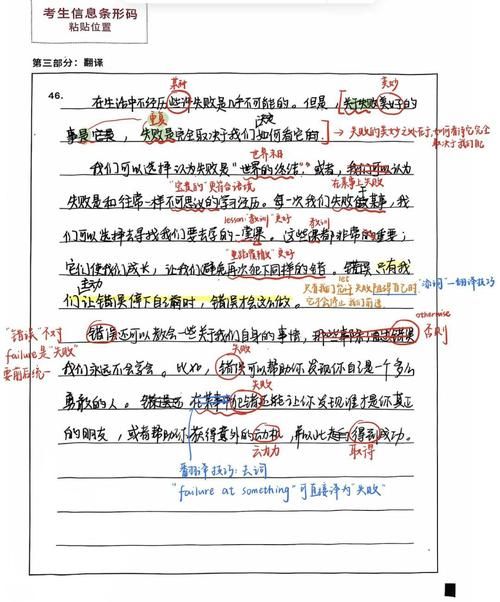 考生信息条形码
粘贴位置
第三部分：翻译
某种 美妙
46. 在生活中不经历些许失败是几乎不可能的。但是，关于失败美好的
重复 决定
事是它是，失败是完全取决于我们如何看它的。
→ 失败的美妙之处在于，如何看待它完全取决于我们
世界末日
我们可以选择认为失败是“世界的终结”，或者，我们可以认为
在某事上失败
失败是和往常一样不可思议的学习经历。每一次我们失败做某事，我
lesson“教训”更好 教训
们可以选择去寻找我们要去学的课。这些课都非常的重要；
它们使我们成长，让我们避免再次犯下同样的错。错误只有我
主动
“添词”-翻译技巧
们让错误停下自己前时，错误才会这么做。
otherwise
否则
“错误”不对
failure是“失败”
要前后统一
错误还可以教会一些关于我们自身的事情，
失败
我们永远不会学会。比如，错误可以帮助你发现你自己是一个多么
失败
勇敢的人。错误还能让你发现谁才是你真正
的朋友，或者帮助你获得意外的动机，并以此走向得到成功。
动力 取得
翻译技巧：去词
“failure at something”可直接译为“失败”